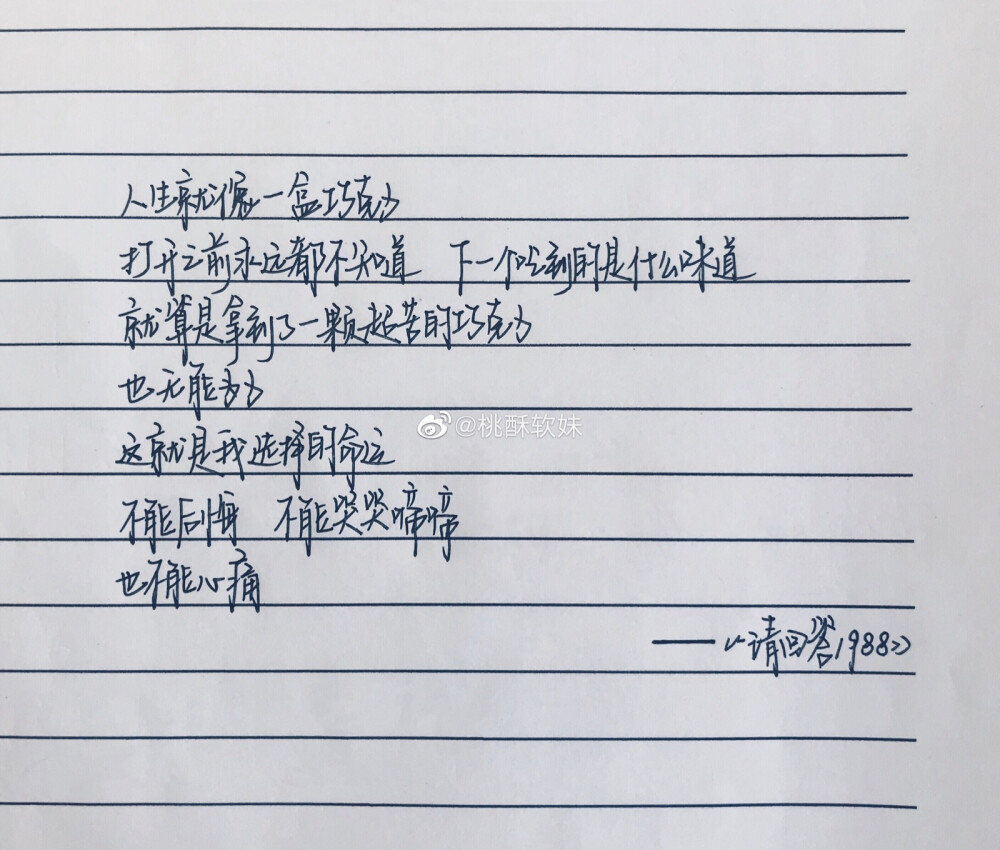 人生就像一盒巧克力
打开之前永远都不知道 下一个吃到的是什么味道
就算是拿到了一颗超苦的巧克力
也无能为力
@桃酥软妹
这就是我选择的命运
不能后悔 不能哭哭啼啼
也不能心痛
——《请回答1988》